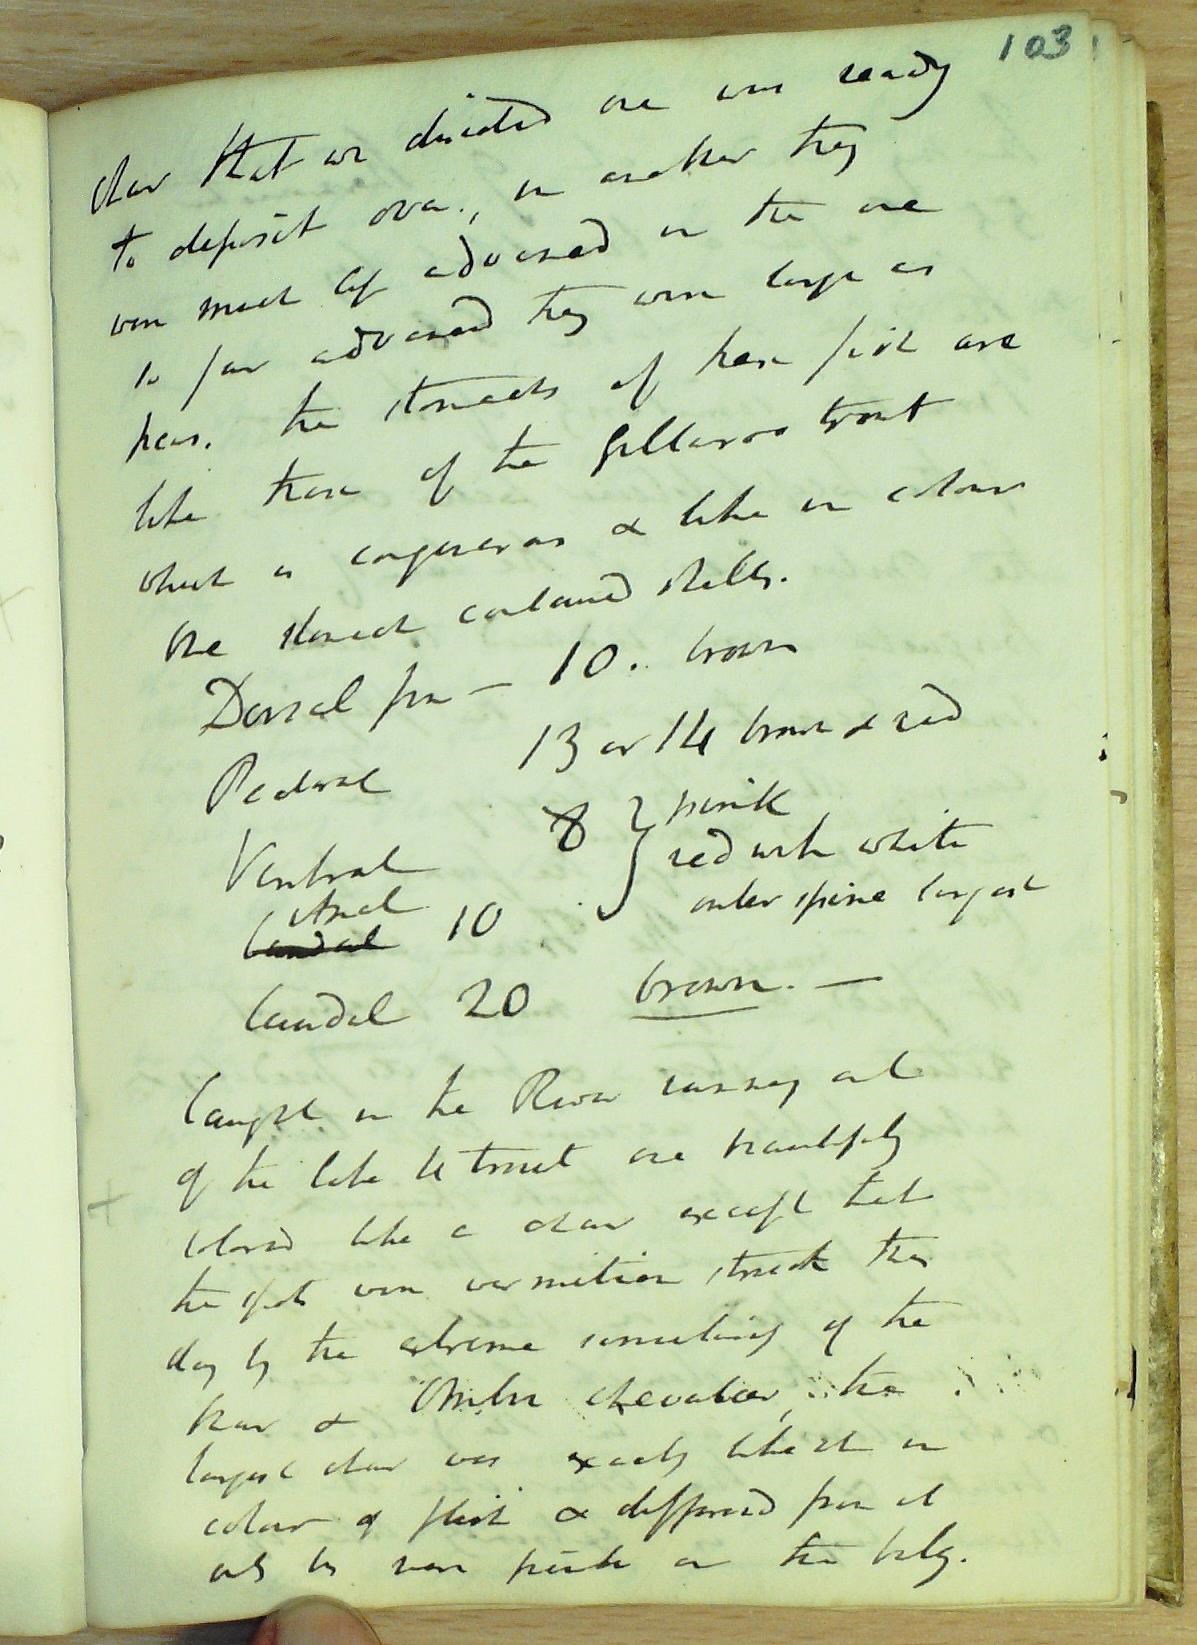 103
char that we dissected one was ready
to deposit ova., in another they
were much less advanced in the one
so far advanced they were large as
peas. the stomachs of these fish are
like those of the Gillaroo trout
which is congenerous & like in colour
One stomach contained shells.
Dorsal fin — 10. brown
Pectoral 13 or 14 brown & red
Ventral 8 } pink
Anal 10 red with white
outer spine largest
Caudal
Caudal 20 brown. —
Caught in the River running out
of the lake 4 trout are beautifully
colored like a char except that
the spots were vermilion struck this
day by the extreme similarity of the
char & Ombre chevalier, the
largest char was exactly like it in
colour of flesh & differed from it
only by more pink on the belly.